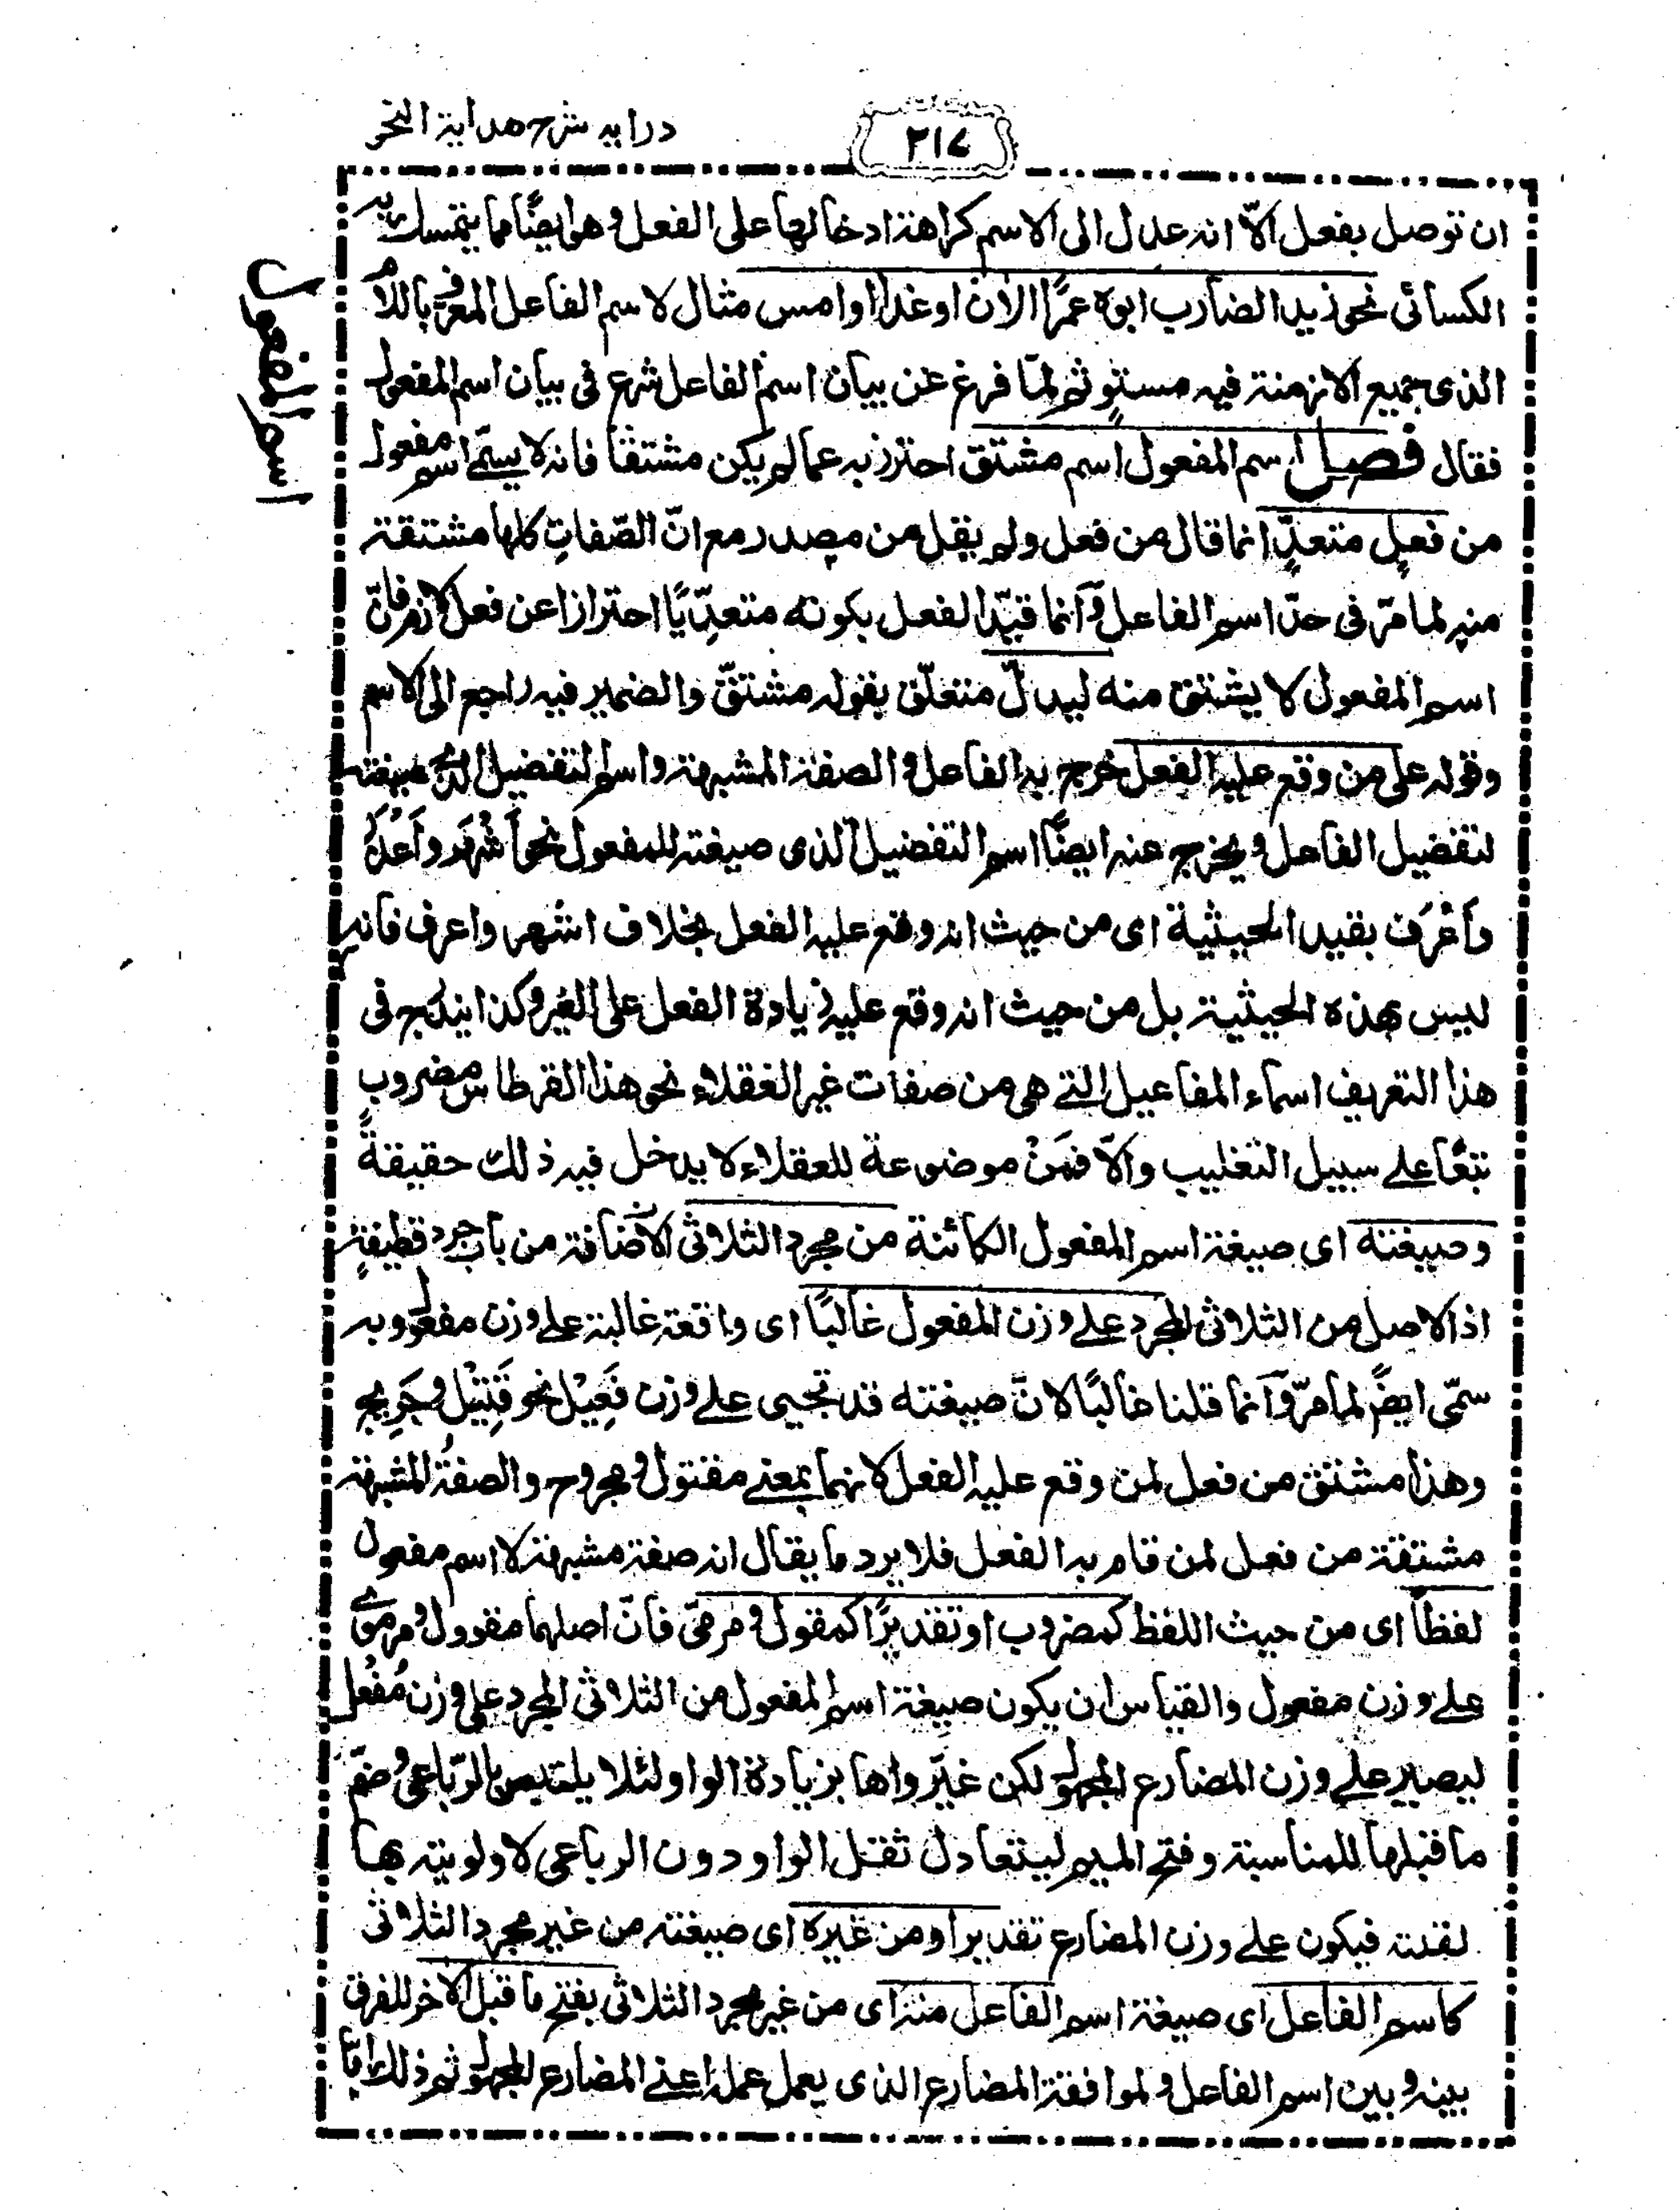 درایه شرح هداية النحو
٢١٧
ان توصل بفعل الّا انه عدل الى الاسم كراهة ادخالها على الفعل وهو ايضًا مما يتمسك به
الكسائى نحو زيد الضارب ابوه عمرًا الآن او غدًا او امس مثال لاسم الفاعل المعرف باللام
الذى جميع الازمنة فيه مستوٍ ثم لمّا فرغ عن بيان اسم الفاعل شرع فى بيان اسم المفعول
فقال فصل اسم المفعول اسم مشتق احترز به عما لم يكن مشتقًا فانه لا يسمّے اسم مفعول
من فعلٍ متعدٍّ انما قال من فعل ولم يقل من مصدر مع انّ الصّفاتِ كلها مشتقة
منه لما مرّ فى حدّ اسم الفاعل وآنما قيّد الفعل بكونه متعدِّيًا احترازا عن فعل لازم فانّ
اسم المفعول لا يشتق منه ليدلّ متعلّق بقوله مشتقّ والضمير فيه راجع الى الاسم
وقوله على من وقع عليه الفعل خرج به الفاعل و الصفة المشبهة واسم التفضيل الذى صيغته
لتفضيل الفاعل ويخرج عنه ايضًا اسم التفضيل الذى صيغته للمفعول نحو أَشْهَر واَعْذَر
وأَعْرَف بقيد الحيثية اى من حيث انه وقع عليه الفعل بخلاف اشهر واعرف فانه
ليس بهذه الحيثية بل من حيث انه وقع عليه زيادة الفعل على الغير وكذا يندرج فى
هذا التعريف اسماء المفاعيل التے هى من صفات غير العقلاء نحو هذا القرطاس مضروب
تبعًا علے سبيل التغليب والّا فمَنْ موضوعة للعقلاء لا يدخل فيه ذلك حقيقةً
وصيغته اى صيغة اسم المفعول الكائنة من مجرد الثلاثى الاضافة من باب جرد قطيفةٍ
اذ الاصل من الثلاثى المجرد علے وزن المفعول غالبًا اى واقعة غالبة علے وزن مفعول وبه
سمّى ايضً لما مرّ وآنما قلنا غالبًا لانّ صيغته قد تجيى علے وزن فَعِيْل نحو قَتِيْل وجَرِيح
وهذا مشتق من فعل لمن وقع عليه الفعل لانهما بمعنے مقتول ومجروح والصفةُ المشبهة
مشتقة من فعل لمن قام به الفعل فلا يرد ما يقال انه صفة مشبهة لا اسم مفعول
لفظًا اى من حيث اللفظ كمضروب او تقديرًا كمقول و مرمىّ فانّ اصلهما مقوول ومرموى
علے وزن مفعول والقياس ان يكون صيغة اسم المفعول من الثلاثى المجرد على وزن مُفْعَل
ليصير علے وزن المضارع المجهول لكن غيّروها بزيادة الواو لئلا يلتبس بالرّباعى وضمّ
ما قبلها للمناسبة وفتح الميم ليتعادل ثقل الواو دون الرباعى لاولويته بها
لقلته فيكون علے وزن المضارع تقديرا ومن غيره اى صيغته من غير مجرد الثلاثى
كاسم الفاعل اى صيغة اسم الفاعل منه اى من غير مجرد الثلاثى بفتح ما قبل الآخر للفرق
بينه وبين اسم الفاعل ولموافقة المضارع الذى يعمل عمله اعنے المضارع المجهول ثم ذلك امّا
اسم المفعول